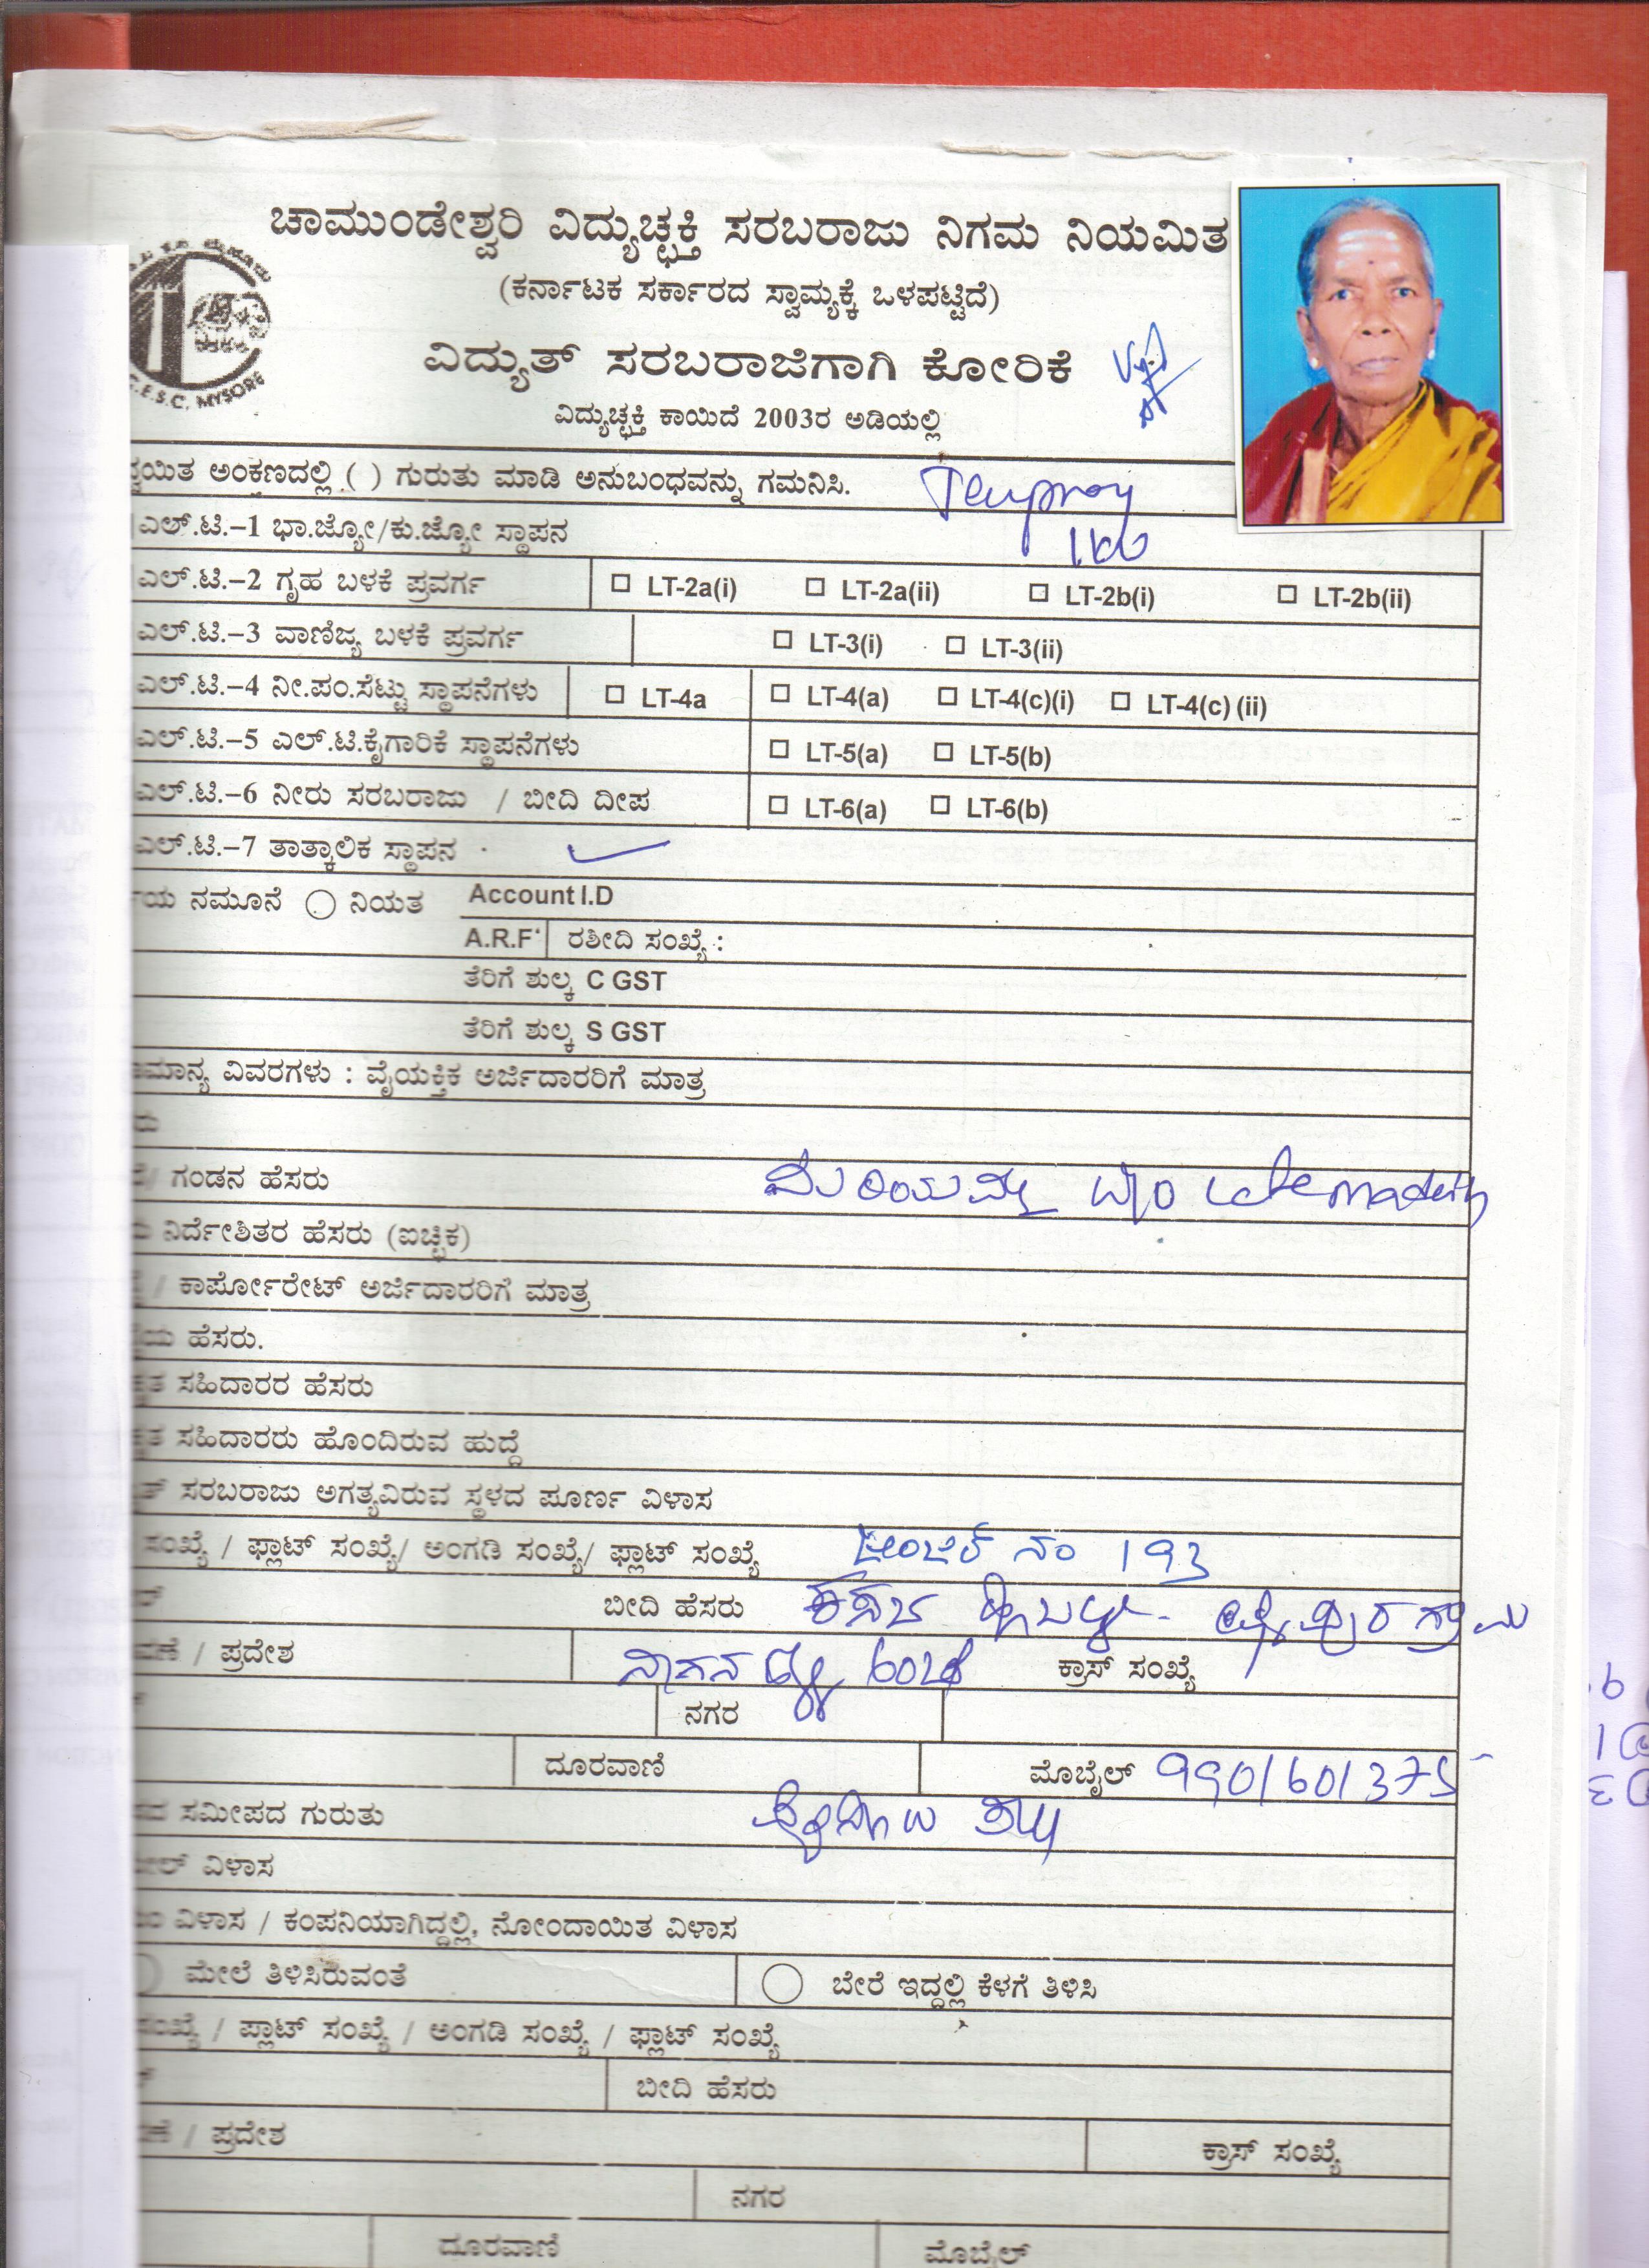 ಚಾಮುಂಡೇಶ್ವರಿ ವಿದ್ಯುಚ್ಛಕ್ತಿ ಸರಬರಾಜು ನಿಗಮ ನಿಯಮಿತ
(ಕರ್ನಾಟಕ ಸರ್ಕಾರದ ಸ್ವಾಮ್ಯಕ್ಕೆ ಒಳಪಟ್ಟಿದೆ)
C.E.S.C. MYSORE
ವಿದ್ಯುತ್ ಸರಬರಾಜಿಗಾಗಿ ಕೋರಿಕೆ
ವಿದ್ಯುಚ್ಛಕ್ತಿ ಕಾಯಿದೆ 2003ರ ಅಡಿಯಲ್ಲಿ
ಅಂಕಣದಲ್ಲಿ ( ) ಗುರುತು ಮಾಡಿ ಅನುಬಂಧವನ್ನು ಗಮನಿಸಿ.
ಎಲ್.ಟಿ.–1 ಭಾ.ಜ್ಯೋ/ಕು.ಜ್ಯೋ ಸ್ಥಾಪನ
ಎಲ್.ಟಿ.–2 ಗೃಹ ಬಳಕೆ ಪ್ರವರ್ಗ LT-2a(i) LT-2a(ii) LT-2b(i) LT-2b(ii)
ಎಲ್.ಟಿ.–3 ವಾಣಿಜ್ಯ ಬಳಕೆ ಪ್ರವರ್ಗ LT-3(i) LT-3(ii)
ಎಲ್.ಟಿ.–4 ನೀ.ಪಂ.ಸೆಟ್ಟು ಸ್ಥಾಪನೆಗಳು LT-4a LT-4(a) LT-4(c)(i) LT-4(c) (ii)
ಎಲ್.ಟಿ.–5 ಎಲ್.ಟಿ.ಕೈಗಾರಿಕೆ ಸ್ಥಾಪನೆಗಳು LT-5(a) LT-5(b)
ಎಲ್.ಟಿ.–6 ನೀರು ಸರಬರಾಜು / ಬೀದಿ ದೀಪ LT-6(a) LT-6(b)
ಎಲ್.ಟಿ.–7 ತಾತ್ಕಾಲಿಕ ಸ್ಥಾಪನ
ನಮೂನೆ ನಿಯತ Account I.D
A.R.F ರಶೀದಿ ಸಂಖ್ಯೆ :
ತೆರಿಗೆ ಶುಲ್ಕ C GST
ತೆರಿಗೆ ಶುಲ್ಕ S GST
ವಿವರಗಳು : ವೈಯಕ್ತಿಕ ಅರ್ಜಿದಾರರಿಗೆ ಮಾತ್ರ
/ ಗಂಡನ ಹೆಸರು
ನಿರ್ದೇಶಿತರ ಹೆಸರು (ಐಚ್ಛಿಕ)
/ ಕಾರ್ಪೋರೇಟ್ ಅರ್ಜಿದಾರರಿಗೆ ಮಾತ್ರ
ಹೆಸರು.
ಸಹಿದಾರರ ಹೆಸರು
ಸಹಿದಾರರು ಹೊಂದಿರುವ ಹುದ್ದೆ
ಸರಬರಾಜು ಅಗತ್ಯವಿರುವ ಸ್ಥಳದ ಪೂರ್ಣ ವಿಳಾಸ
ಸಂಖ್ಯೆ / ಫ್ಲಾಟ್ ಸಂಖ್ಯೆ/ ಅಂಗಡಿ ಸಂಖ್ಯೆ/ ಫ್ಲಾಟ್ ಸಂಖ್ಯೆ ನಂ 193
ಬೀದಿ ಹೆಸರು ಕಸಬ
/ ಪ್ರದೇಶ ಕ್ರಾಸ್ ಸಂಖ್ಯೆ
ನಗರ
ದೂರವಾಣಿ ಮೊಬೈಲ್ 9901601375
ಸಮೀಪದ ಗುರುತು
ವಿಳಾಸ
ವಿಳಾಸ / ಕಂಪನಿಯಾಗಿದ್ದಲ್ಲಿ, ನೋಂದಾಯಿತ ವಿಳಾಸ
ಮೇಲೆ ತಿಳಿಸಿರುವಂತೆ ಬೇರೆ ಇದ್ದಲ್ಲಿ ಕೆಳಗೆ ತಿಳಿಸಿ
ಸಂಖ್ಯೆ / ಪ್ಲಾಟ್ ಸಂಖ್ಯೆ / ಅಂಗಡಿ ಸಂಖ್ಯೆ / ಫ್ಲಾಟ್ ಸಂಖ್ಯೆ
ಬೀದಿ ಹೆಸರು
/ ಪ್ರದೇಶ ಕ್ರಾಸ್ ಸಂಖ್ಯೆ
ನಗರ
ದೂರವಾಣಿ ಮೊಬೈಲ್